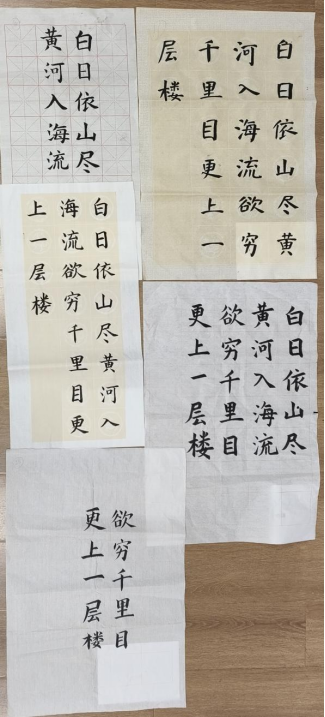 白日依山尽
黄河入海流
白日依山尽黄
河入海流欲穷
千里目更上一
层楼
白日依山尽黄河入
海流欲穷千里目更
上一层楼
白日依山尽
黄河入海流
欲穷千里目
更上一层楼
欲穷千里目
更上一层楼